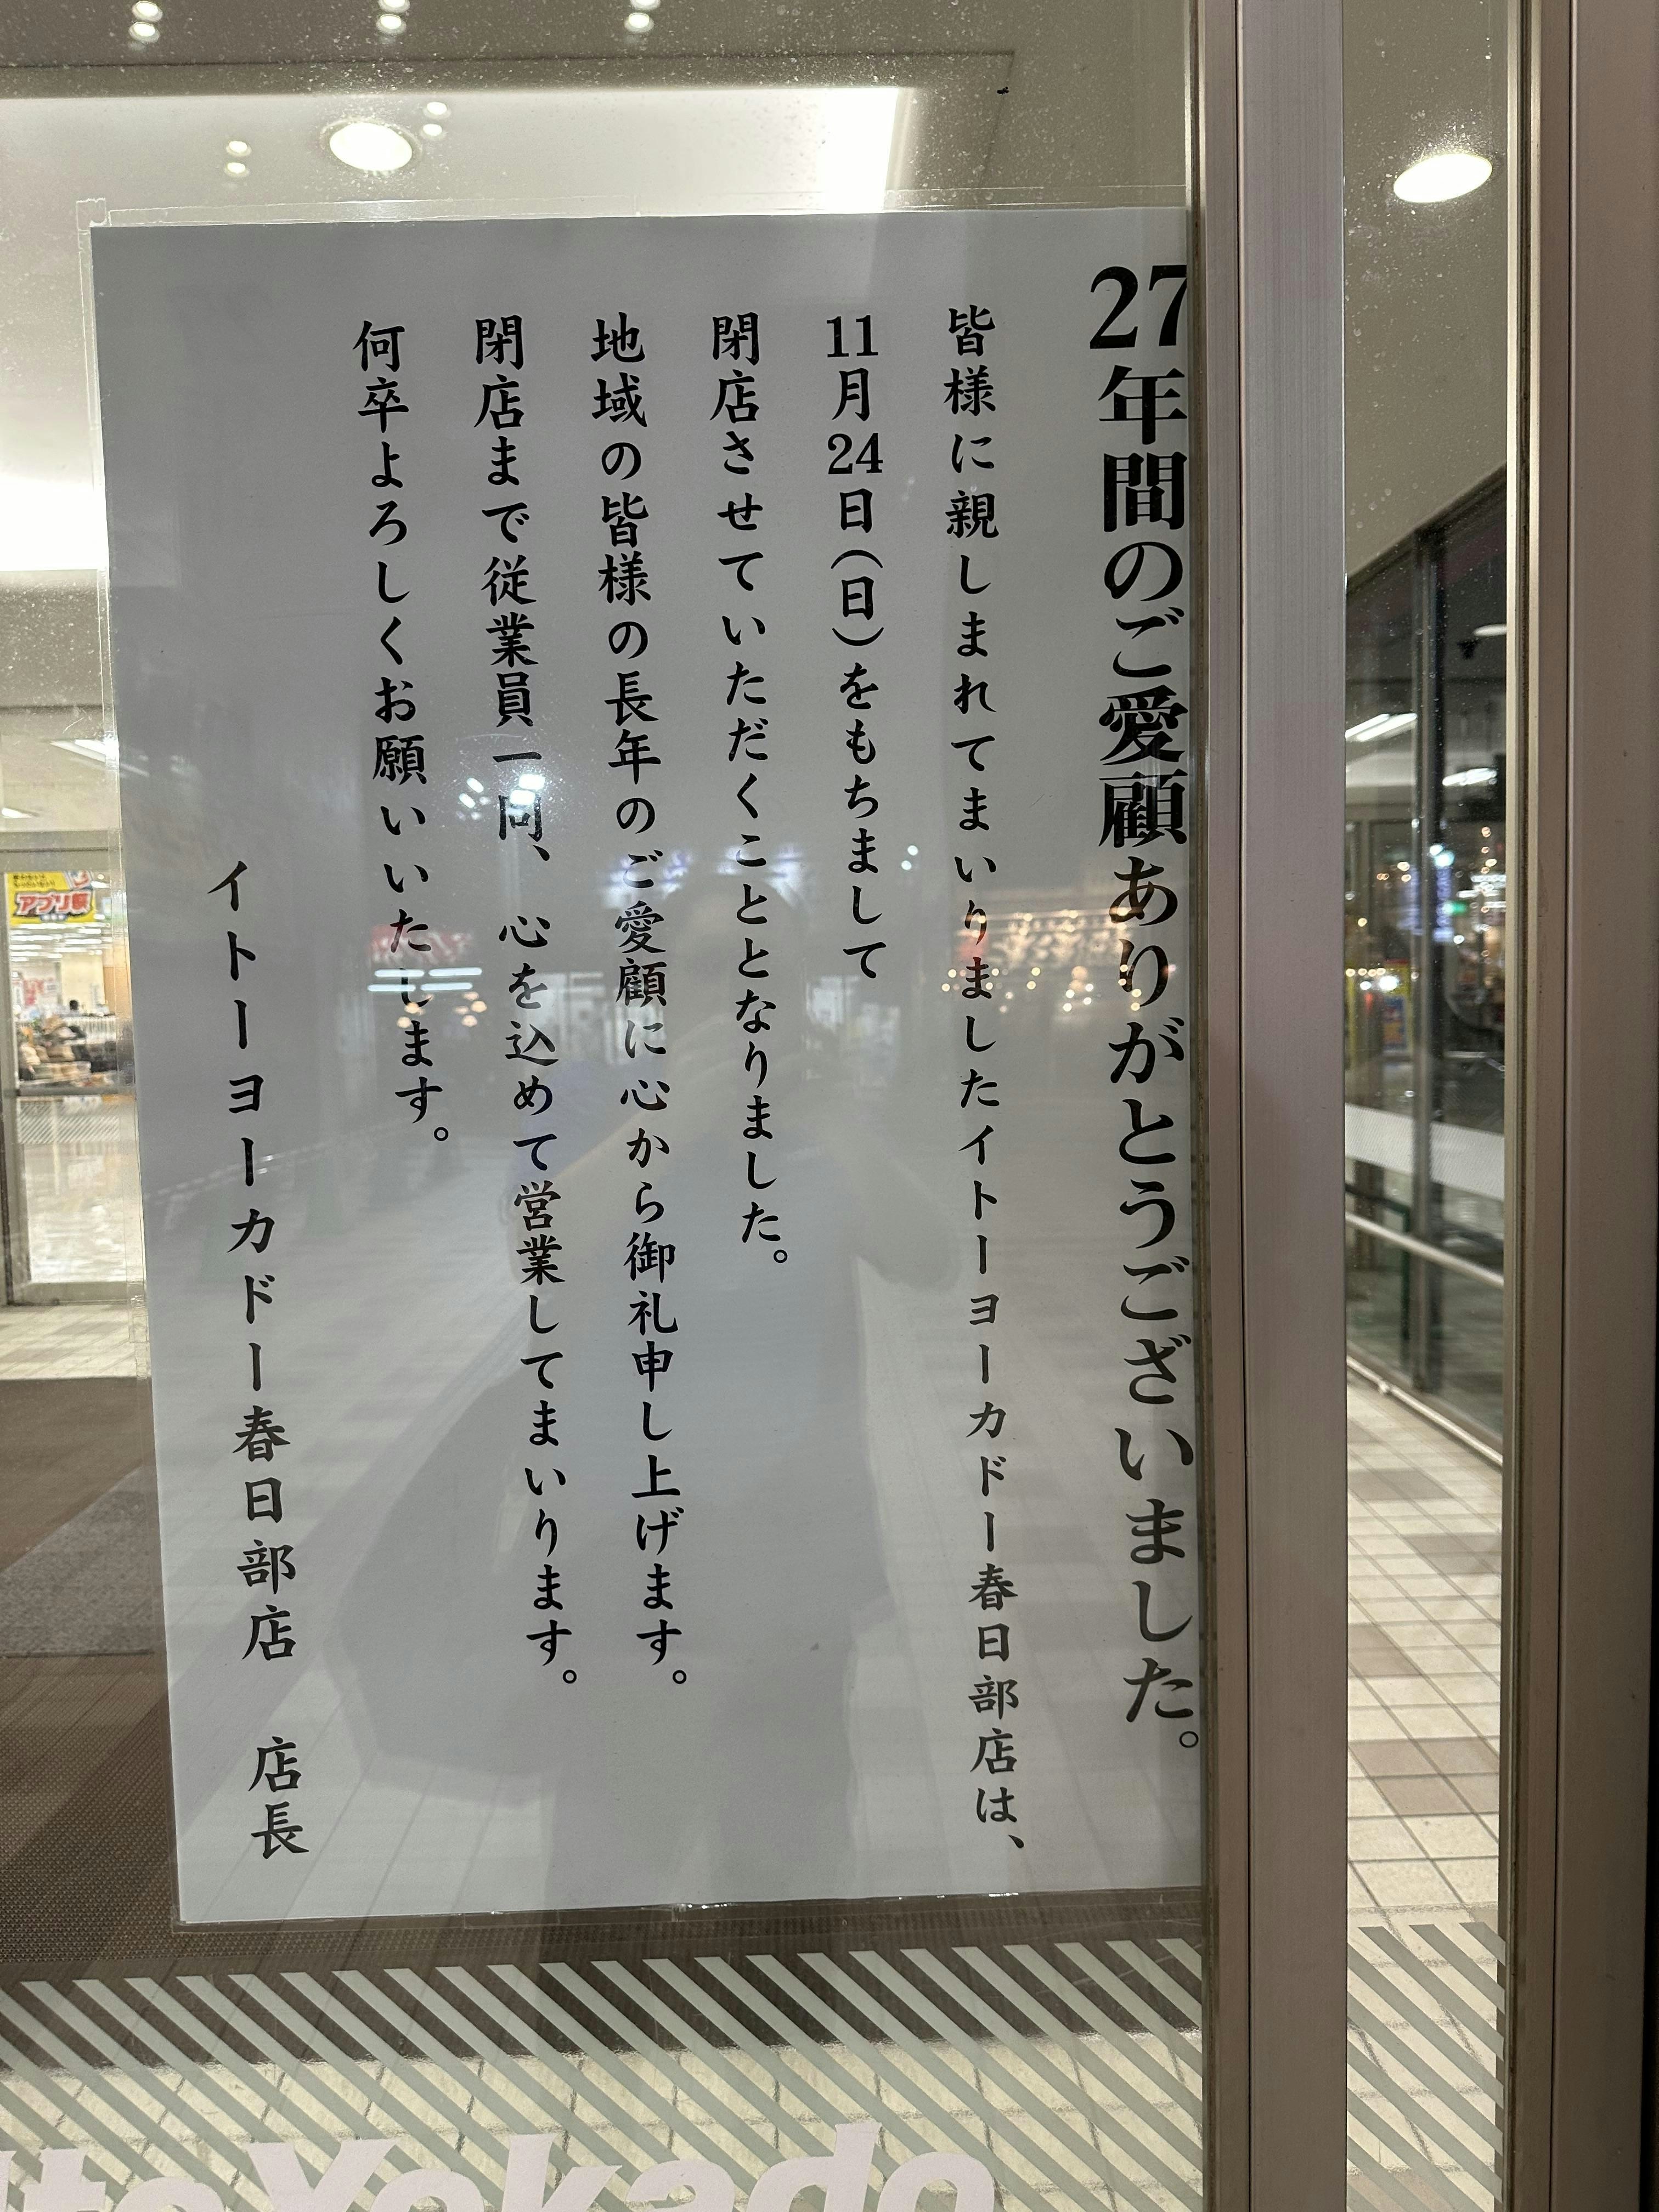 27年間のご愛顧ありがとうございました。
皆様に親しまれてまいりましたイトーヨーカドー春日部店は、
11月24日(日)をもちまして
閉店させていただくこととなりました。
地域の皆様の長年のご愛顧に心から御礼申し上げます。
閉店まで従業員一同、心を込めて営業してまいります。
何卒よろしくお願いいたします。
イトーヨーカドー春日部店 店長
アプリ祭
ItoYokado